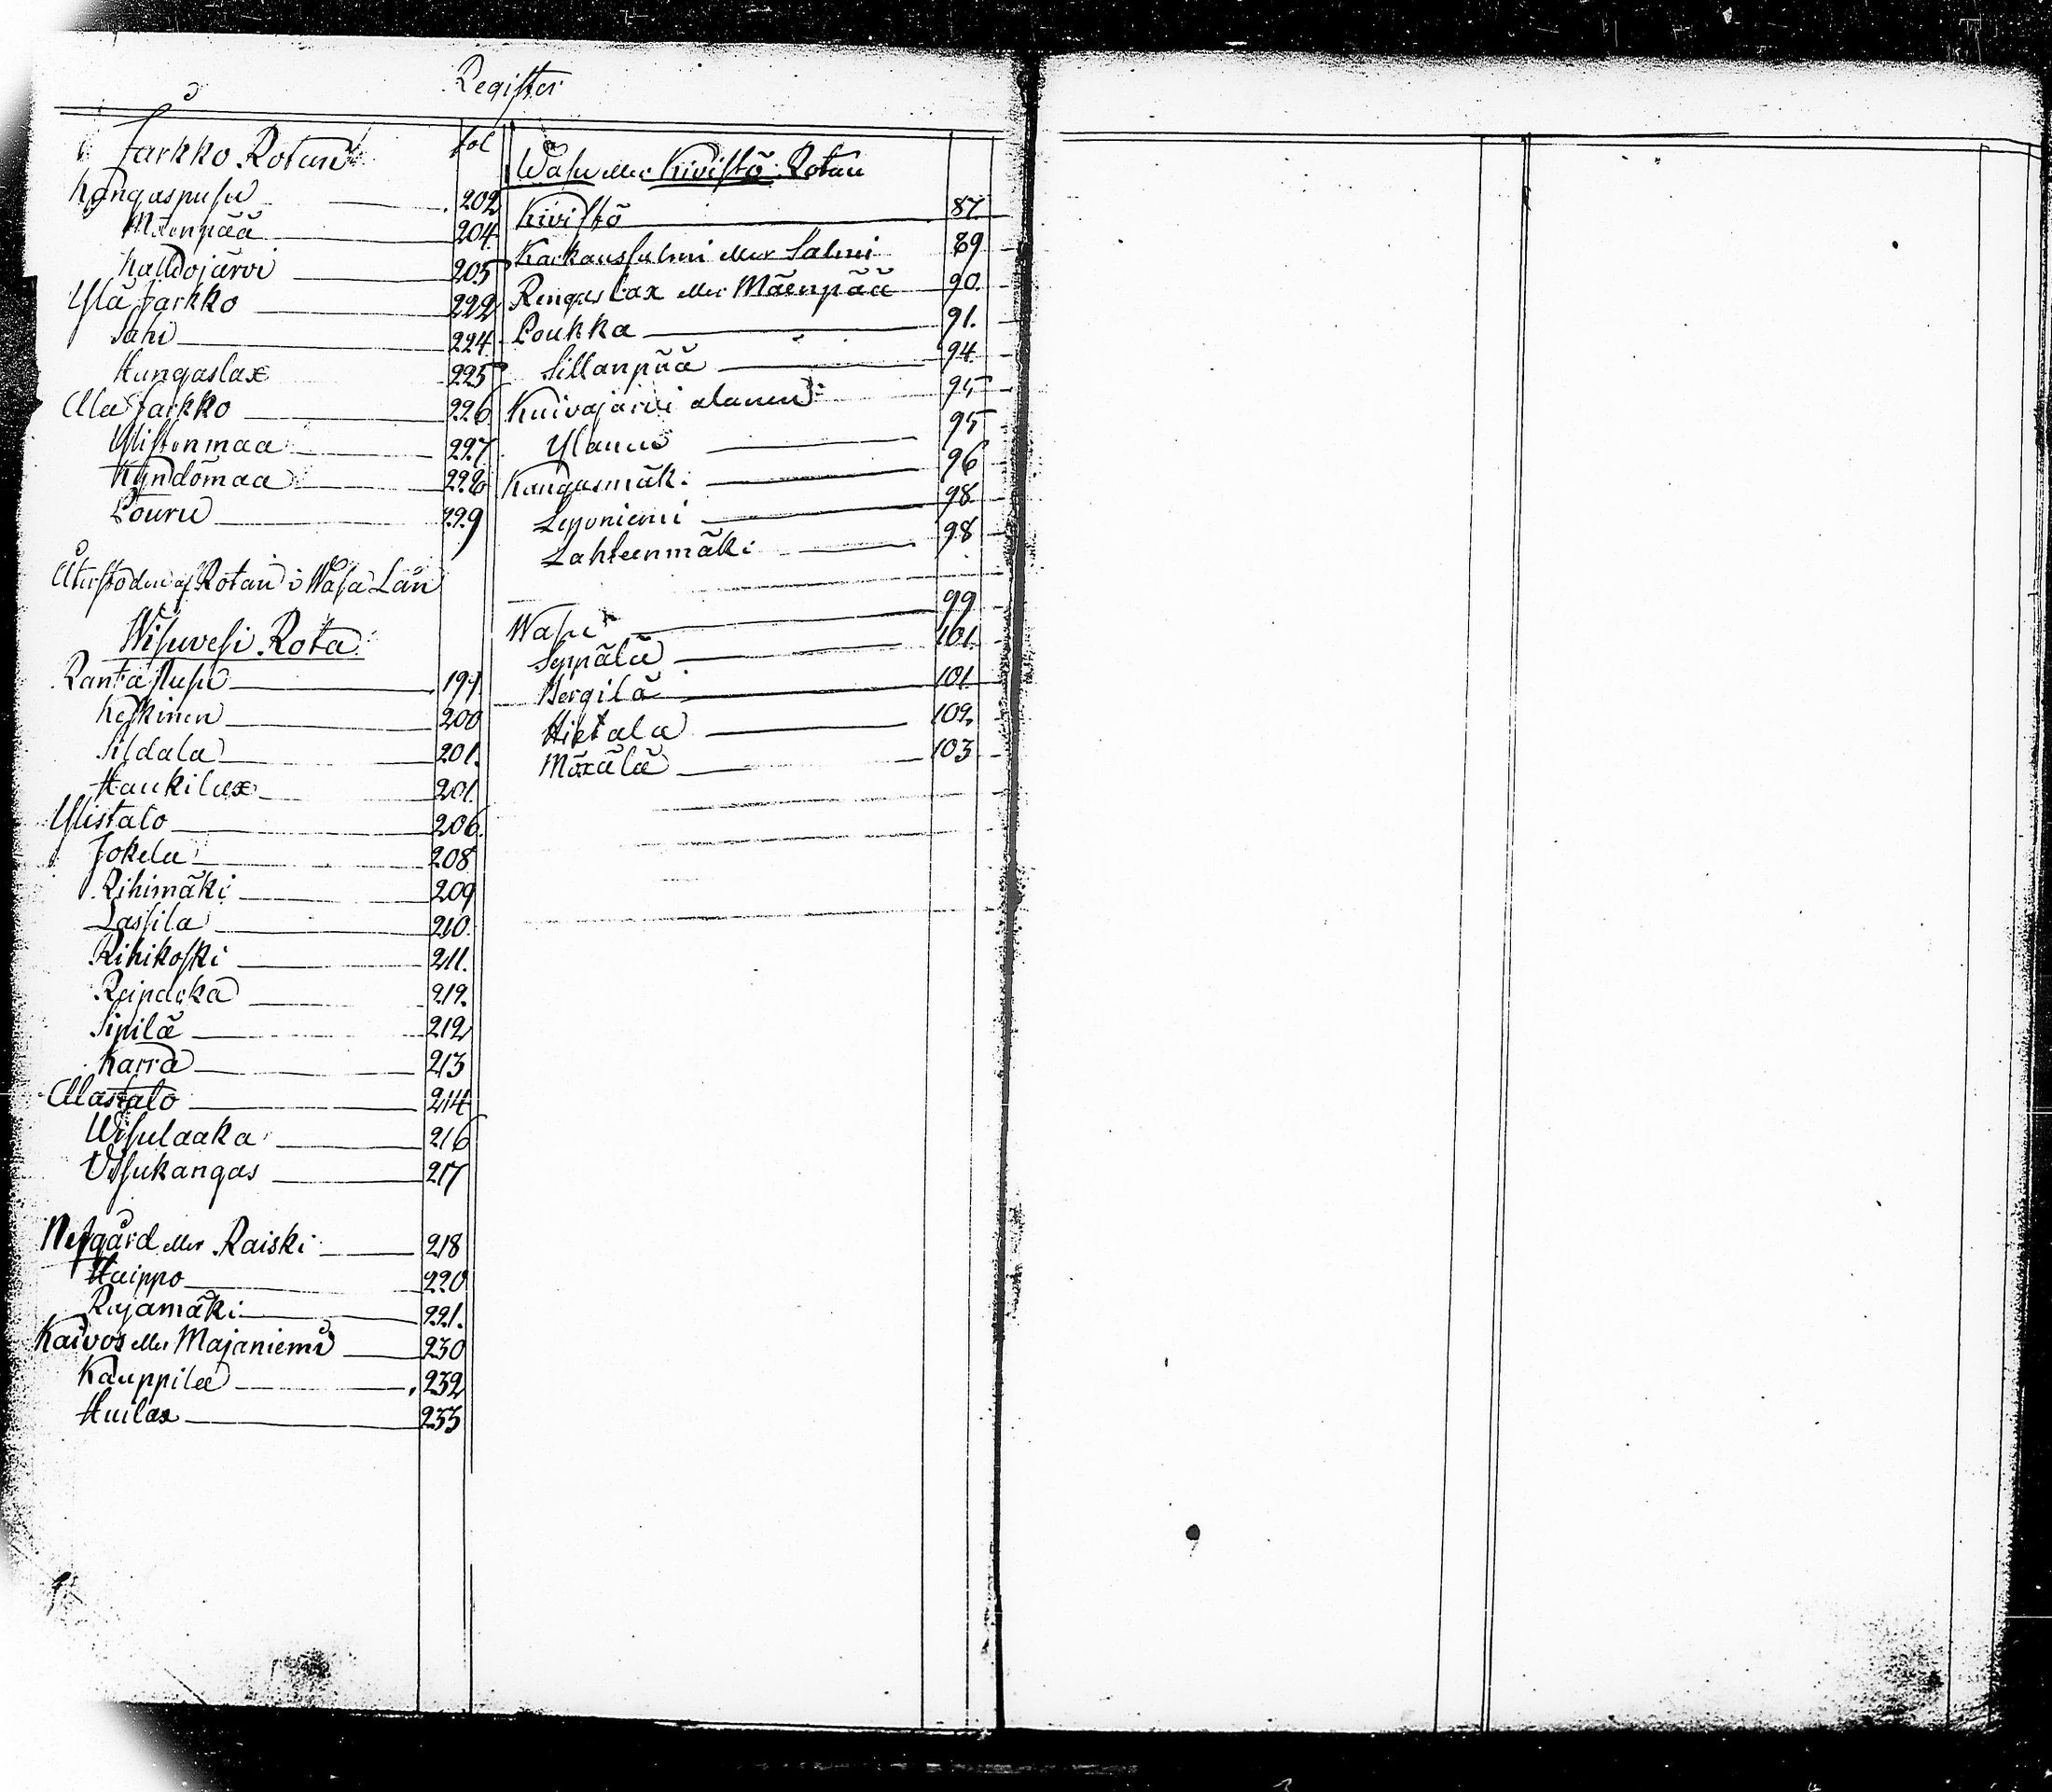 Register
Jarkko Rotan Fol
Kangaspusu 202
Mäenpää 204
Kalliojärvi 205
Ylä Jarkko 222
Sahi 224
Hangaslax 225
Ala Jarkko 226
Ylistenmaa 227
Kyndömaa 228
Louru 229
Återstoden af Rotan i Wasa Län
Wisuvesi Rota
Ranta Pusu 199
Keskinen 200
Sildala 201.
Haukilax 201.
Ylistalo 206.
Jokela 208
Rihimäki 209
Lassila 210.
Rihikoski 211.
Reipacka 212.
Sipilä 212
Karra 213
Alastalo 214
Wisulaaka 216
Visukangas 217
Nygård eller Raiski 218
Haippo 220
Rajamäki 221.
Kaivos eller Majaniemi 230
Kauppila 232
Huilax 233
Wasu eller Kivistö Rotan
Kivistö 87.
Karkaussalmi eller Salmi 89
Rengaslax eller Mäenpää 90.
Loukka 91.
Sillanpää 94
Kuivajärvi alanen 95
Ylanen 95
Kangasmäki 96
Leponiemi 98
Lahteenmäki 98
Wasu 99
Seppälä 101.
Mergilä 101
Hietala 102.
Mäxälä 103